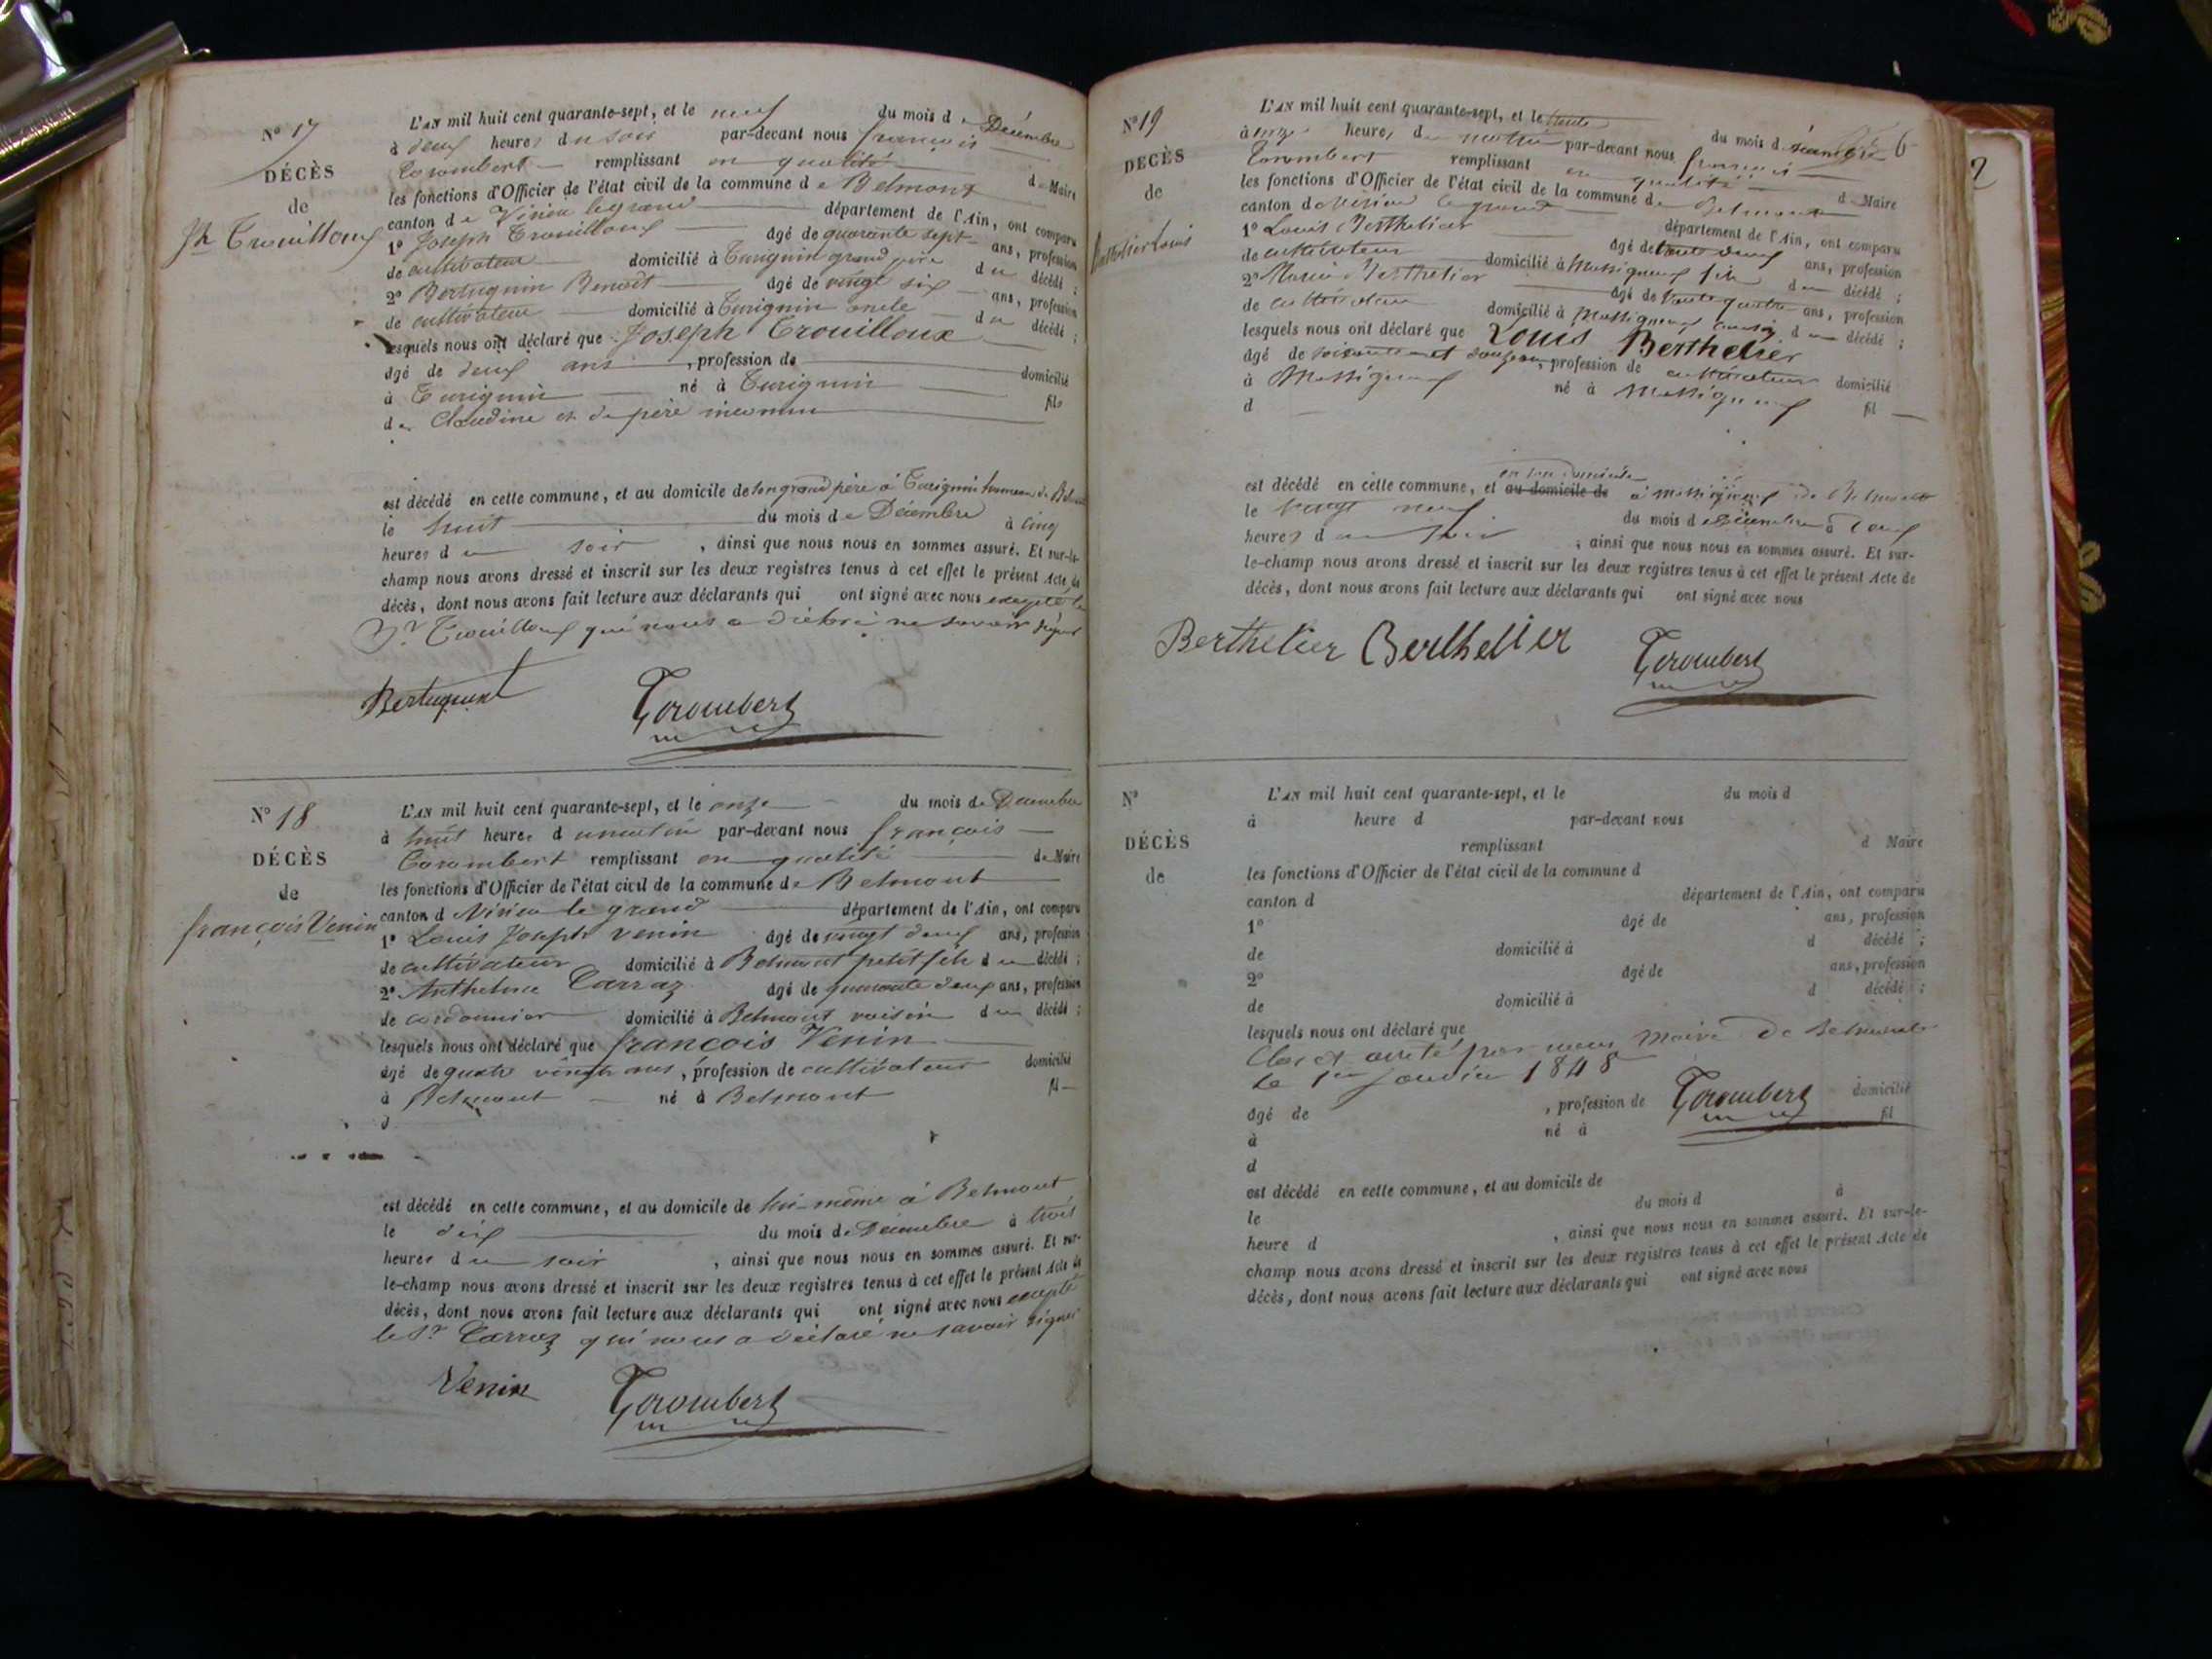 N° 17
DÉCÈS
de
Jh Trouilloux
L'AN mil huit cent quarante-sept, et le neuf du mois de Décembre
à deux heures du soir par-devant nous françois
Corombert remplissant en qualité de Maire
les fonctions d'Officier de l'état civil de la commune de Belmont
canton de Virieu legrand département de l'Ain, ont comparu
1° Joseph Trouilloux âgé de quarante sept ans, profession
de cultivateur domicilié à Turignin grand père du décédé ;
2° Bertugnin Benoît âgé de vingt six ans, profession
de cultivateur domicilié à Turignin oncle du décédé ;
lesquels nous ont déclaré que Joseph Trouilloux
âgé de deux ans, profession de domicilié
à Turignin né à Turignin fils
de Claudine et de père inconnu
est décédé en cette commune, et au domicile de son grand père à Turignin hameau de
le huit du mois de Décembre à cinq
heures du soir, ainsi que nous nous en sommes assuré. Et sur-le-
champ nous avons dressé et inscrit sur les deux registres tenus à cet effet le présent Acte de
décès, dont nous avons fait lecture aux déclarants qui ont signé avec nous excepté le
Sr Trouilloux qui nous a déclaré ne savoir signer
Corombert
N° 18
DÉCÈS
de
françois Venin
L'AN mil huit cent quarante-sept, et le onze du mois de Décembre
à huit heures du matin par-devant nous françois
Corombert remplissant en qualité de Maire
les fonctions d'Officier de l'état civil de la commune de Belmont
canton d Virieu le grand département de l'Ain, ont comparu
1° Louis Joseph Venin âgé de vingt deux ans, profession
de cultivateur domicilié à Belmont petit fils du décédé ;
2° Anthelme Carraz âgé de quarante deux ans, profession
de cordonnier domicilié à Belmont voisin du décédé ;
lesquels nous ont déclaré que françois Venin
âgé de quatre vingts ans, profession de cultivateur domicilié
à Belmont né à Belmont fil
d
est décédé en cette commune, et au domicile de lui-même à Belmont
le dix du mois de Décembre à trois
heures du soir, ainsi que nous nous en sommes assuré. Et sur-
le-champ nous avons dressé et inscrit sur les deux registres tenus à cet effet le présent Acte de
décès, dont nous avons fait lecture aux déclarants qui ont signé avec nous excepté
le Sr Carraz qui nous a déclaré ne savoir signer
Venin Corombert
N° 19
DÉCÈS
de
Berthelier Louis
L'AN mil huit cent quarante-sept, et le trente du mois d décembre
à onze heures du matin par-devant nous françois
Corombert remplissant en qualité de Maire
les fonctions d'Officier de l'état civil de la commune de Belmont
canton de Virieu le grand département de l'Ain, ont comparu
1° Louis Berthelier âgé de trente deux ans, profession
de cultivateur domicilié à Massigneux fils du décédé ;
2° Marin Berthelier âgé de trente quatre ans, profession
de cultivateur domicilié à Massigneux cousin du décédé ;
lesquels nous ont déclaré que Louis Berthelier
âgé de soixante et douze ans, profession de cultivateur domicilié
à Massigneux né à Massigneux fil
d
est décédé en cette commune, et au domicile de en son domicile à Massigneux de Belmont
le vingt neuf du mois de Décembre à deux
heures du soir, ainsi que nous nous en sommes assuré. Et sur-
le-champ nous avons dressé et inscrit sur les deux registres tenus à cet effet le présent Acte de
décès, dont nous avons fait lecture aux déclarants qui ont signé avec nous
Berthelier Berthelier Corombert
N°
DÉCÈS
de
L'AN mil huit cent quarante-sept, et le du mois d
à heure d par-devant nous
remplissant d Maire
les fonctions d'Officier de l'état civil de la commune d
canton d département de l'Ain, ont comparu
1° âgé de ans, profession
de domicilié à d décédé ;
2° âgé de ans, profession
de domicilié à d décédé ;
lesquels nous ont déclaré que
Clos et arrêté par nous Maire de Belmont
le 1er Janvier 1848
Corombert
âgé de , profession de domicilié
à né à fil
d
est décédé en cette commune, et au domicile de
le du mois d à
heure d , ainsi que nous nous en sommes assuré. Et sur-le-
champ nous avons dressé et inscrit sur les deux registres tenus à cet effet le présent Acte de
décès, dont nous avons fait lecture aux déclarants qui ont signé avec nous